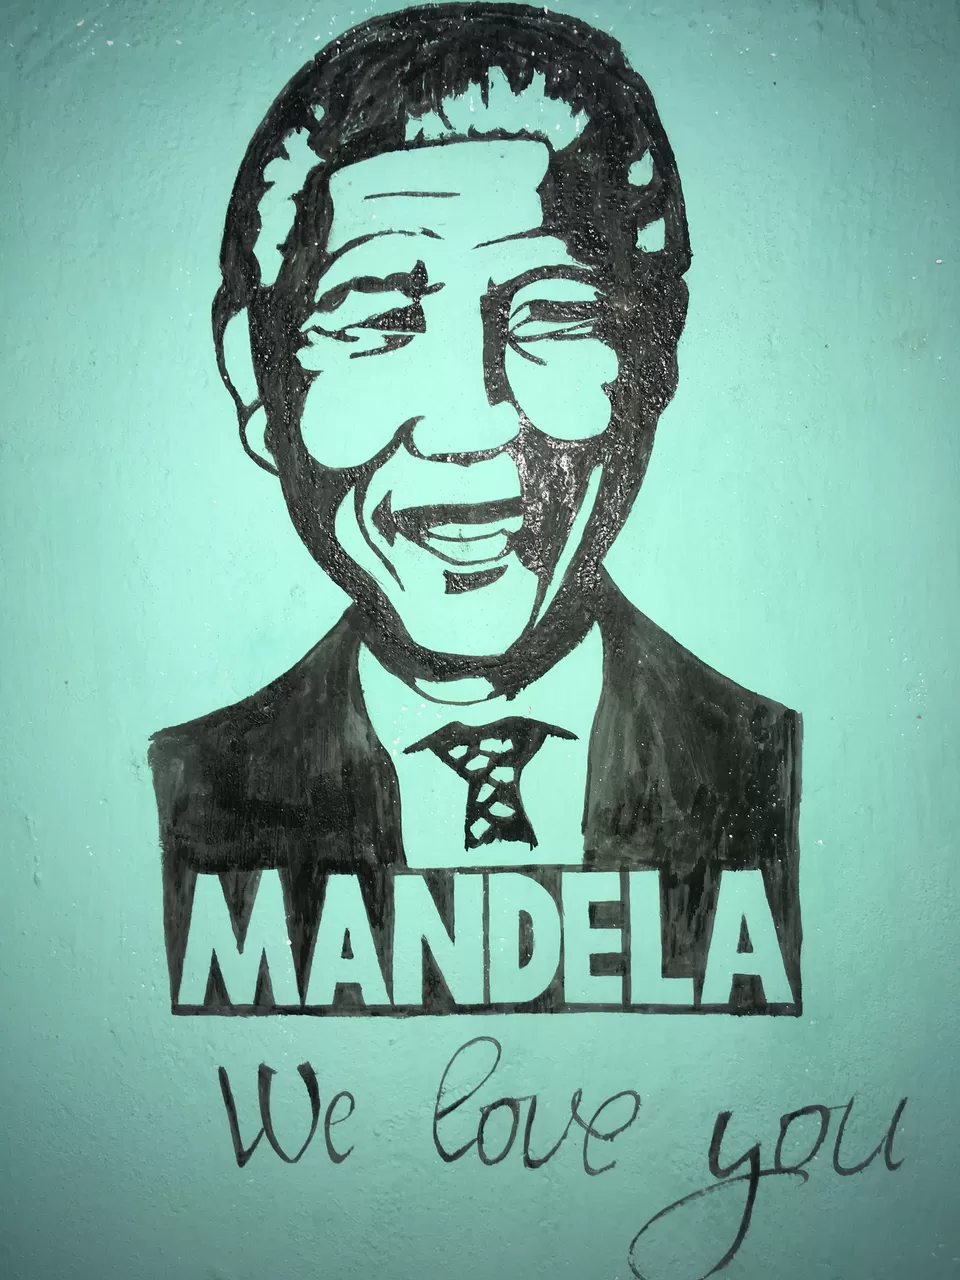 MANDELA
We love you